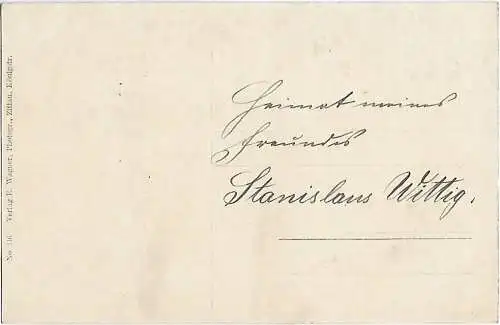 No. 116 Verlag R. Wagner, Photogr., Zittau, Königstr.
Heimat meines
Freundes
Stanislaus Wittig.